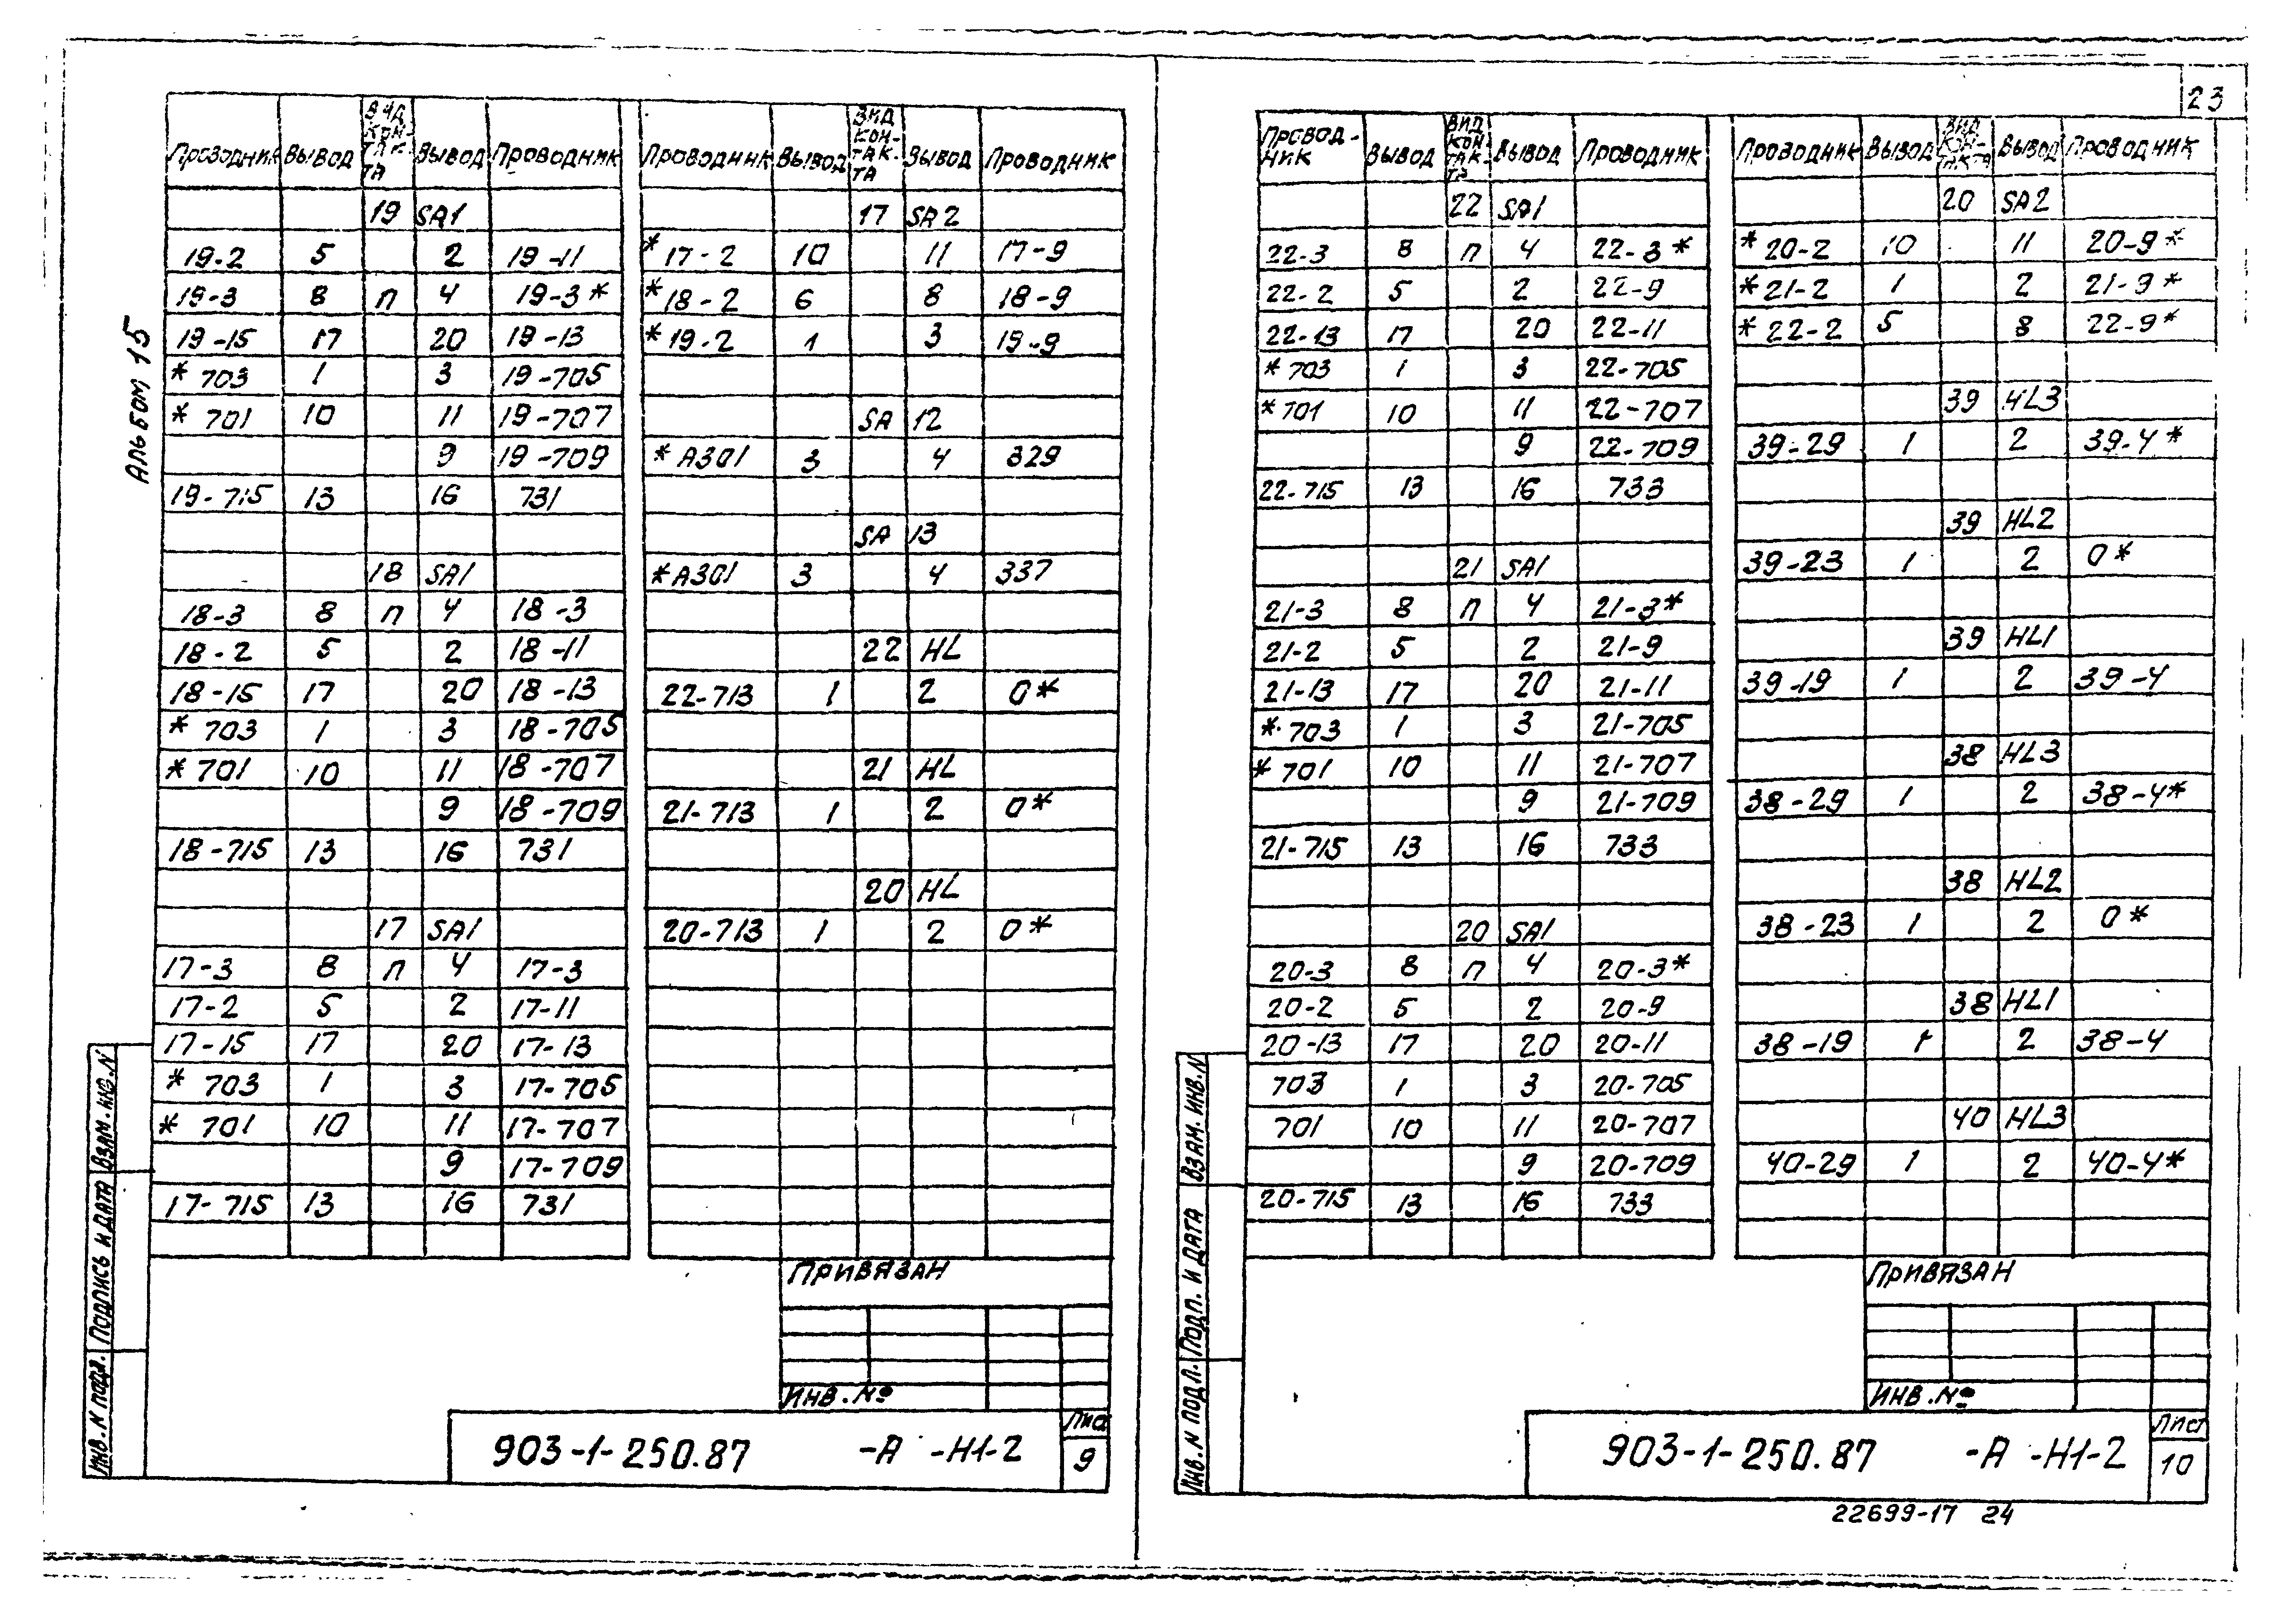 23
Альбом 15
Проводник Вывод Вид кон-так-та Вывод Проводник
19 SA1
19-2 5 2 19-11
19-3 8 п 4 19-3*
19-15 17 20 19-13
* 703 1 3 19-705
* 701 10 11 19-707
9 19-709
19-715 13 16 731
18 SA1
18-3 8 п 4 18-3
18-2 5 2 18-11
18-15 17 20 18-13
* 703 1 3 18-705
* 701 10 11 18-707
9 18-709
18-715 13 16 731
17 SA1
17-3 8 п 4 17-3
17-2 5 2 17-11
17-15 17 20 17-13
* 703 1 3 17-705
* 701 10 11 17-707
9 17-709
17-715 13 16 731
Проводник Вывод Вид кон-так-та Вывод Проводник
17 SA2
* 17-2 10 11 17-9
* 18-2 6 8 18-9
* 19-2 1 3 19-9
SA 12
* А301 3 4 329
SA 13
* А301 3 4 337
22 HL
22-713 1 2 0*
21 HL
21-713 1 2 0*
20 HL
20-713 1 2 0*
Привязан
Инв. №
903-1-250.87 -А -Н1-2
Лист
9
Инв. N подл. Подпись и дата Взам. инв. N
Провод-ник Вывод Вид кон-так-та Вывод Проводник
22 SA1
22-3 8 п 4 22-3*
22-2 5 2 22-9
22-13 17 20 22-11
* 703 1 3 22-705
* 701 10 11 22-707
9 22-709
22-715 13 16 733
21 SA1
21-3 8 п 4 21-3*
21-2 5 2 21-9
21-13 17 20 21-11
* 703 1 3 21-705
* 701 10 11 21-707
9 21-709
21-715 13 16 733
20 SA1
20-3 8 п 4 20-3*
20-2 5 2 20-9
20-13 17 20 20-11
703 1 3 20-705
701 10 11 20-707
9 20-709
20-715 13 16 733
Проводник Вывод Вид кон-такта Вывод Проводник
20 SA2
* 20-2 10 11 20-9*
* 21-2 1 2 21-9*
* 22-2 5 8 22-9*
39 HL3
39-29 1 2 39-4*
39 HL2
39-23 1 2 0*
39 HL1
39-19 1 2 39-4
38 HL3
38-29 1 2 38-4*
38 HL2
38-23 1 2 0*
38 HL1
38-19 1 2 38-4
40 HL3
40-29 1 2 40-4*
Привязан
Инв. №
903-1-250.87 -А -Н1-2
Лист
10
Инв. N подл. Подп. и дата Взам. инв. N
22699-17 24